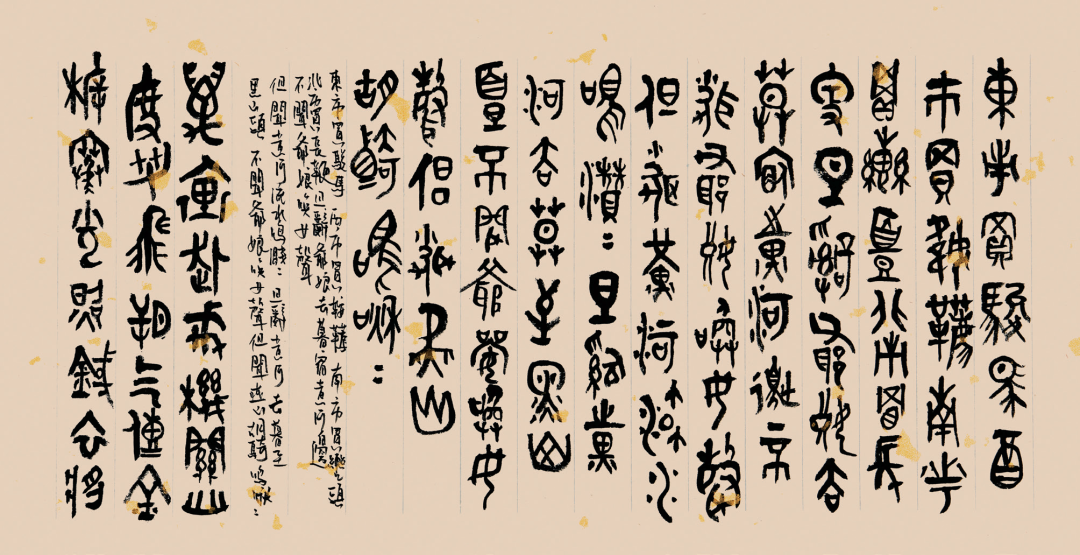 東市買駿馬西
市買鞍韉南市
買轡頭北市買長
鞭旦辭爺娘去
暮宿黃河邊不
聞爺娘喚女聲
但聞黃河流水
鳴濺：旦辭黃
河去暮至黑山
頭不聞爺孃喚女
聲但聞燕山
胡騎鳴啾：
東市買駿馬西市買鞍韉南市買轡頭
北市買長鞭旦辭爺娘去暮宿黃河邊
不聞爺娘喚女聲
但聞黃河流水鳴濺：旦辭黃河去暮至
黑山頭不聞爺娘喚女聲但聞燕山胡騎鳴啾：
萬里赴戎機關山
度若飛朔气傳金
柝寒光照鐵衣將